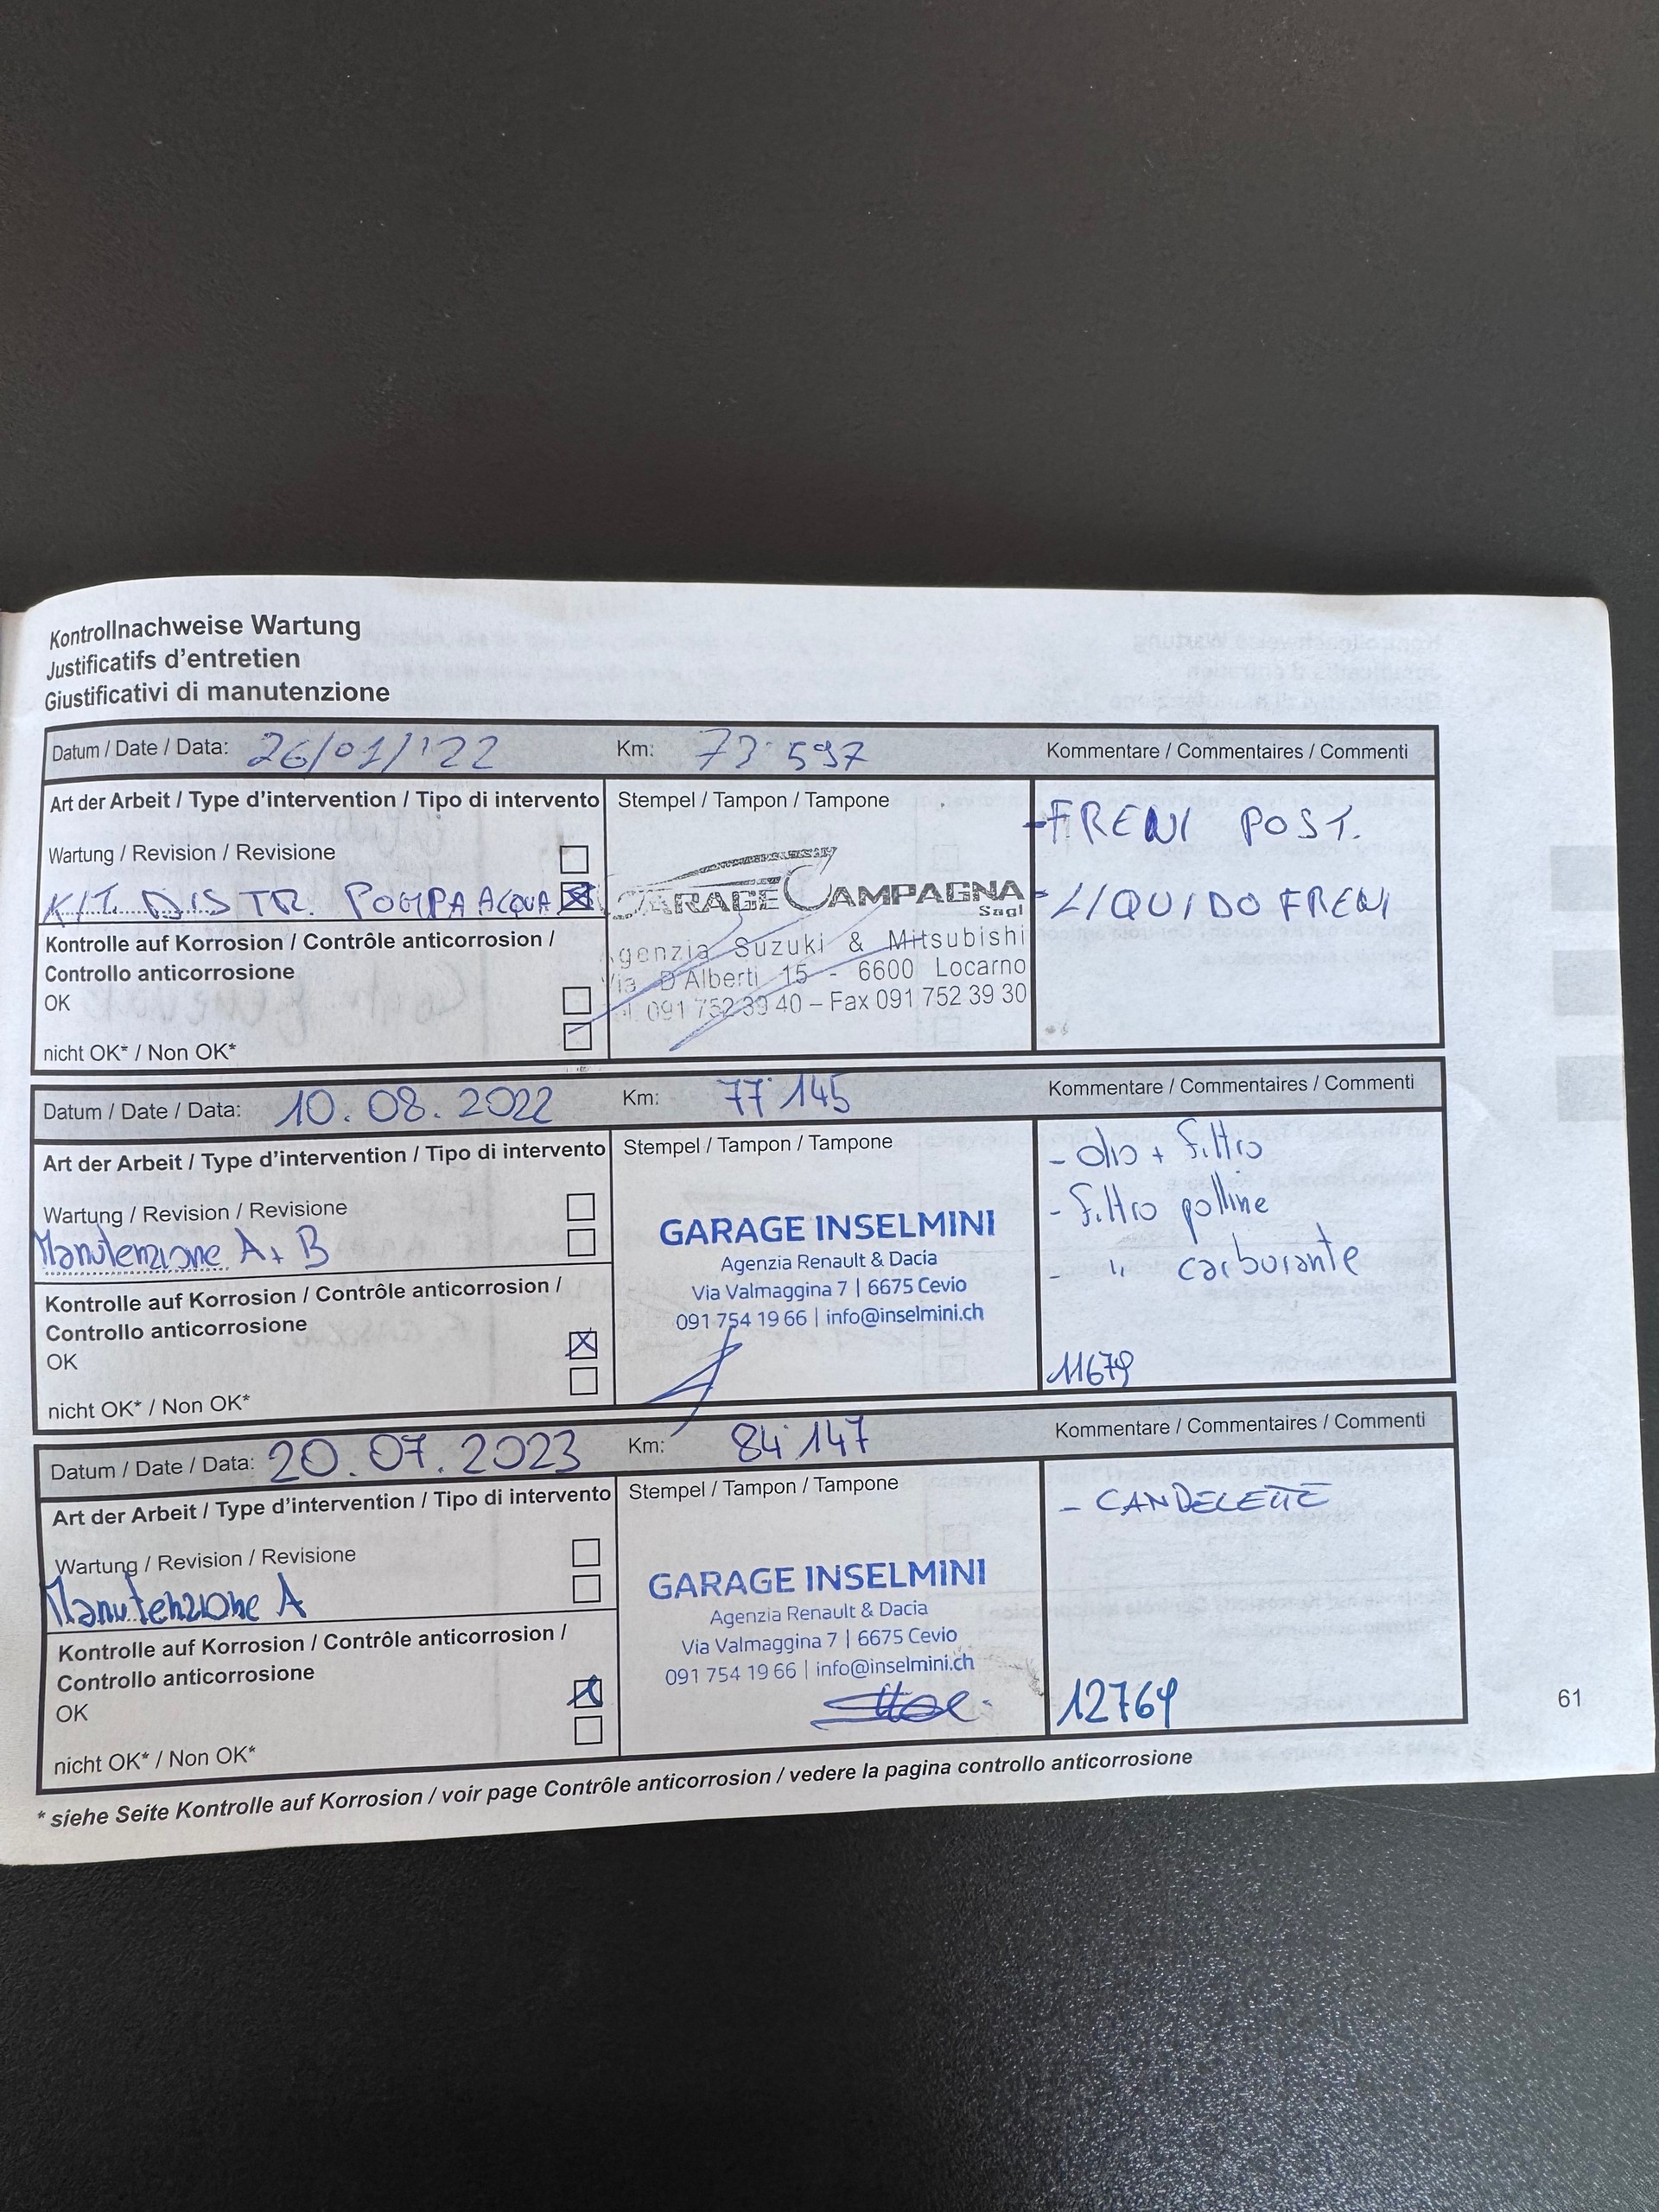 Kontrollnachweise Wartung
Justificatifs d'entretien
Giustificativi di manutenzione
Datum / Date / Data: 26/01/'22 Km: 73'597 Kommentare / Commentaires / Commenti
Art der Arbeit / Type d'intervention / Tipo di intervento Stempel / Tampon / Tampone
Wartung / Revision / Revisione
KIT. DISTR. POMPA ACQUA
Kontrolle auf Korrosion / Contrôle anticorrosion /
Controllo anticorrosione
OK
nicht OK* / Non OK*
GARAGE CAMPAGNA
Sagl
Agenzia Suzuki & Mitsubishi
Via D'Alberti 15 - 6600 Locarno
Tel. 091 752 39 40 – Fax 091 752 39 30
- FRENI POST.
- LIQUIDO FRENI
Datum / Date / Data: 10.08.2022 Km: 77'145 Kommentare / Commentaires / Commenti
Art der Arbeit / Type d'intervention / Tipo di intervento Stempel / Tampon / Tampone
Wartung / Revision / Revisione
Manutenzione A+B
Kontrolle auf Korrosion / Contrôle anticorrosion /
Controllo anticorrosione
OK
nicht OK* / Non OK*
GARAGE INSELMINI
Agenzia Renault & Dacia
Via Valmaggina 7 | 6675 Cevio
091 754 19 66 | info@inselmini.ch
- olio + filtro
- filtro polline
- " carburante
11679
Datum / Date / Data: 20.07.2023 Km: 84'147 Kommentare / Commentaires / Commenti
Art der Arbeit / Type d'intervention / Tipo di intervento Stempel / Tampon / Tampone
Wartung / Revision / Revisione
Manutenzione A
Kontrolle auf Korrosion / Contrôle anticorrosion /
Controllo anticorrosione
OK
nicht OK* / Non OK*
GARAGE INSELMINI
Agenzia Renault & Dacia
Via Valmaggina 7 | 6675 Cevio
091 754 19 66 | info@inselmini.ch
- CANDELETTE
12769
* siehe Seite Kontrolle auf Korrosion / voir page Contrôle anticorrosion / vedere la pagina controllo anticorrosione
61